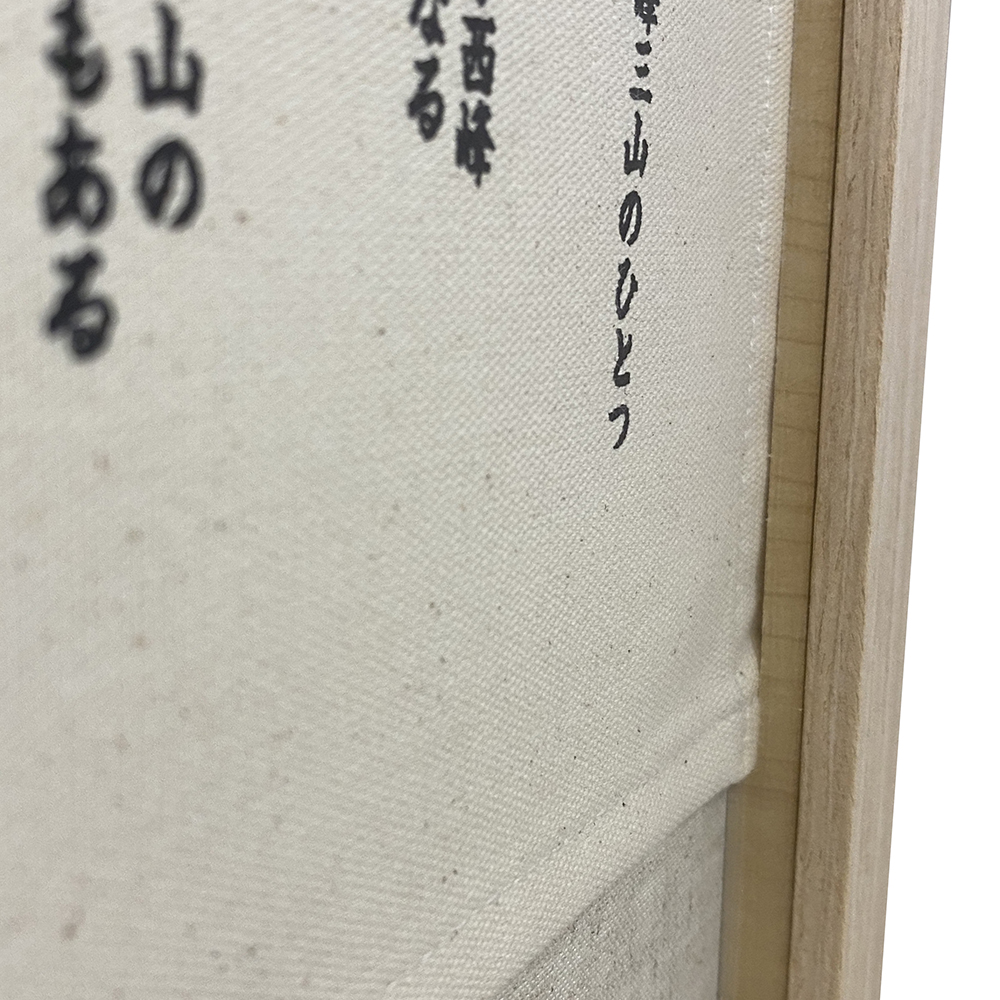 三山のひとつ
西峰
なる
山の
もある